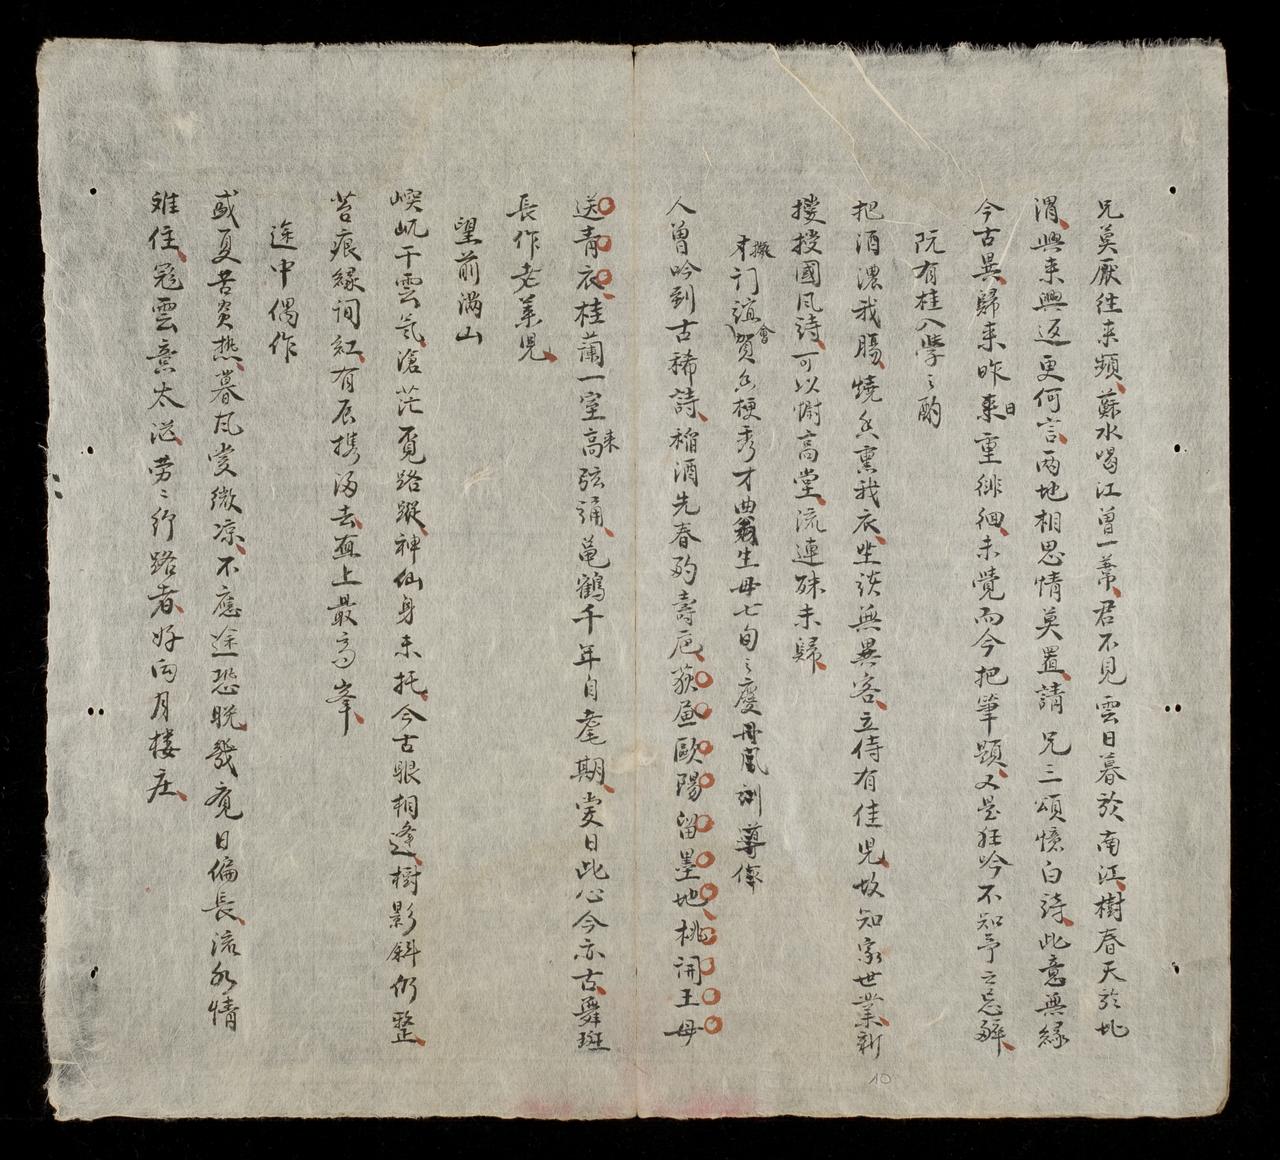 兄莫厭往來頻蘇水喝江曾一葦君不見雲日暮於南江樹春天於北
渭興來興返更何言兩地相思情莫置請兄三頌憶白詩此意無緣
今古異歸來昨來日重徘徊未覺而今把筆題又是狂吟不知予之忘醉
阮有桂入學之酌
把酒濃我腸燒香熏我衣坐談無異客立侍有佳兒故知家世業新
搜搜國風詩可以慰高堂流連殊未歸
擬本訂誼會賀香梗秀才曲翁生母七旬之慶丹鳳訓導
人曾吟到古稀詩稲酒先春酌壽巵荻畫歐陽留墨地桃開王母
送青衣桂蘭一室高來弦誦龜鶴千年自耄期愛日此心今亦古舞斑
長作老萊兒
望前滿山
峻屼干雲氣滄茫覓路蹤神仙身未托今古眼相逢樹影斜仍整
苔痕緣詞紅有辰携酒去直上最高峯
途中偶作
盛夏苦炎熱暮風愛微凉不應途恐晚幾覓日偏長流水情
难住雲意太忙劳劳行路者好向月楼庄